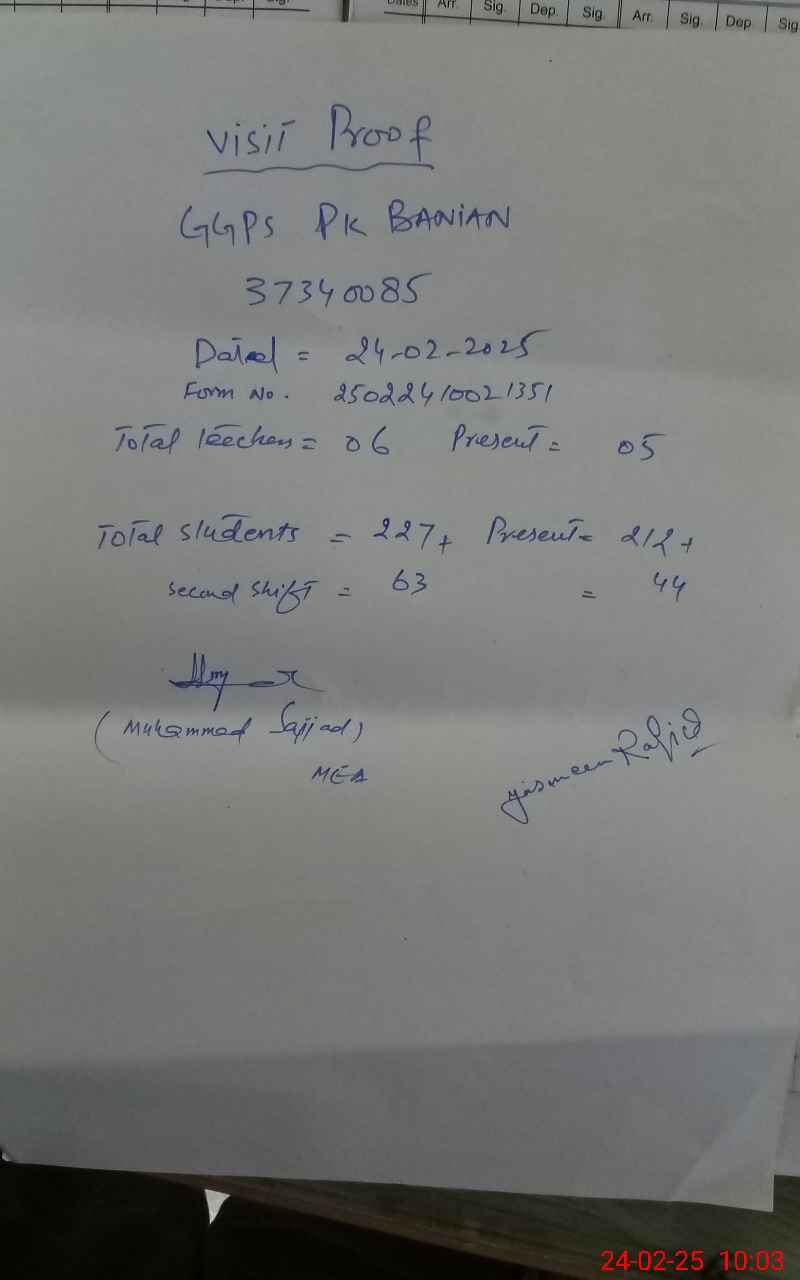 Dates Arr. Sig. Dep. Sig. Arr. Sig. Dep Sig
Visit Proof
GGPS PK BANIAN
37340085
Dated = 24-02-2025
Form No. 25022410021351
Total teachers = 06 Present = 05
Total students = 227+ Present = 212+
second shift = 63 = 44
(Muhammad Sajjad)
MEA
Yasmeen
24-02-25 10:03